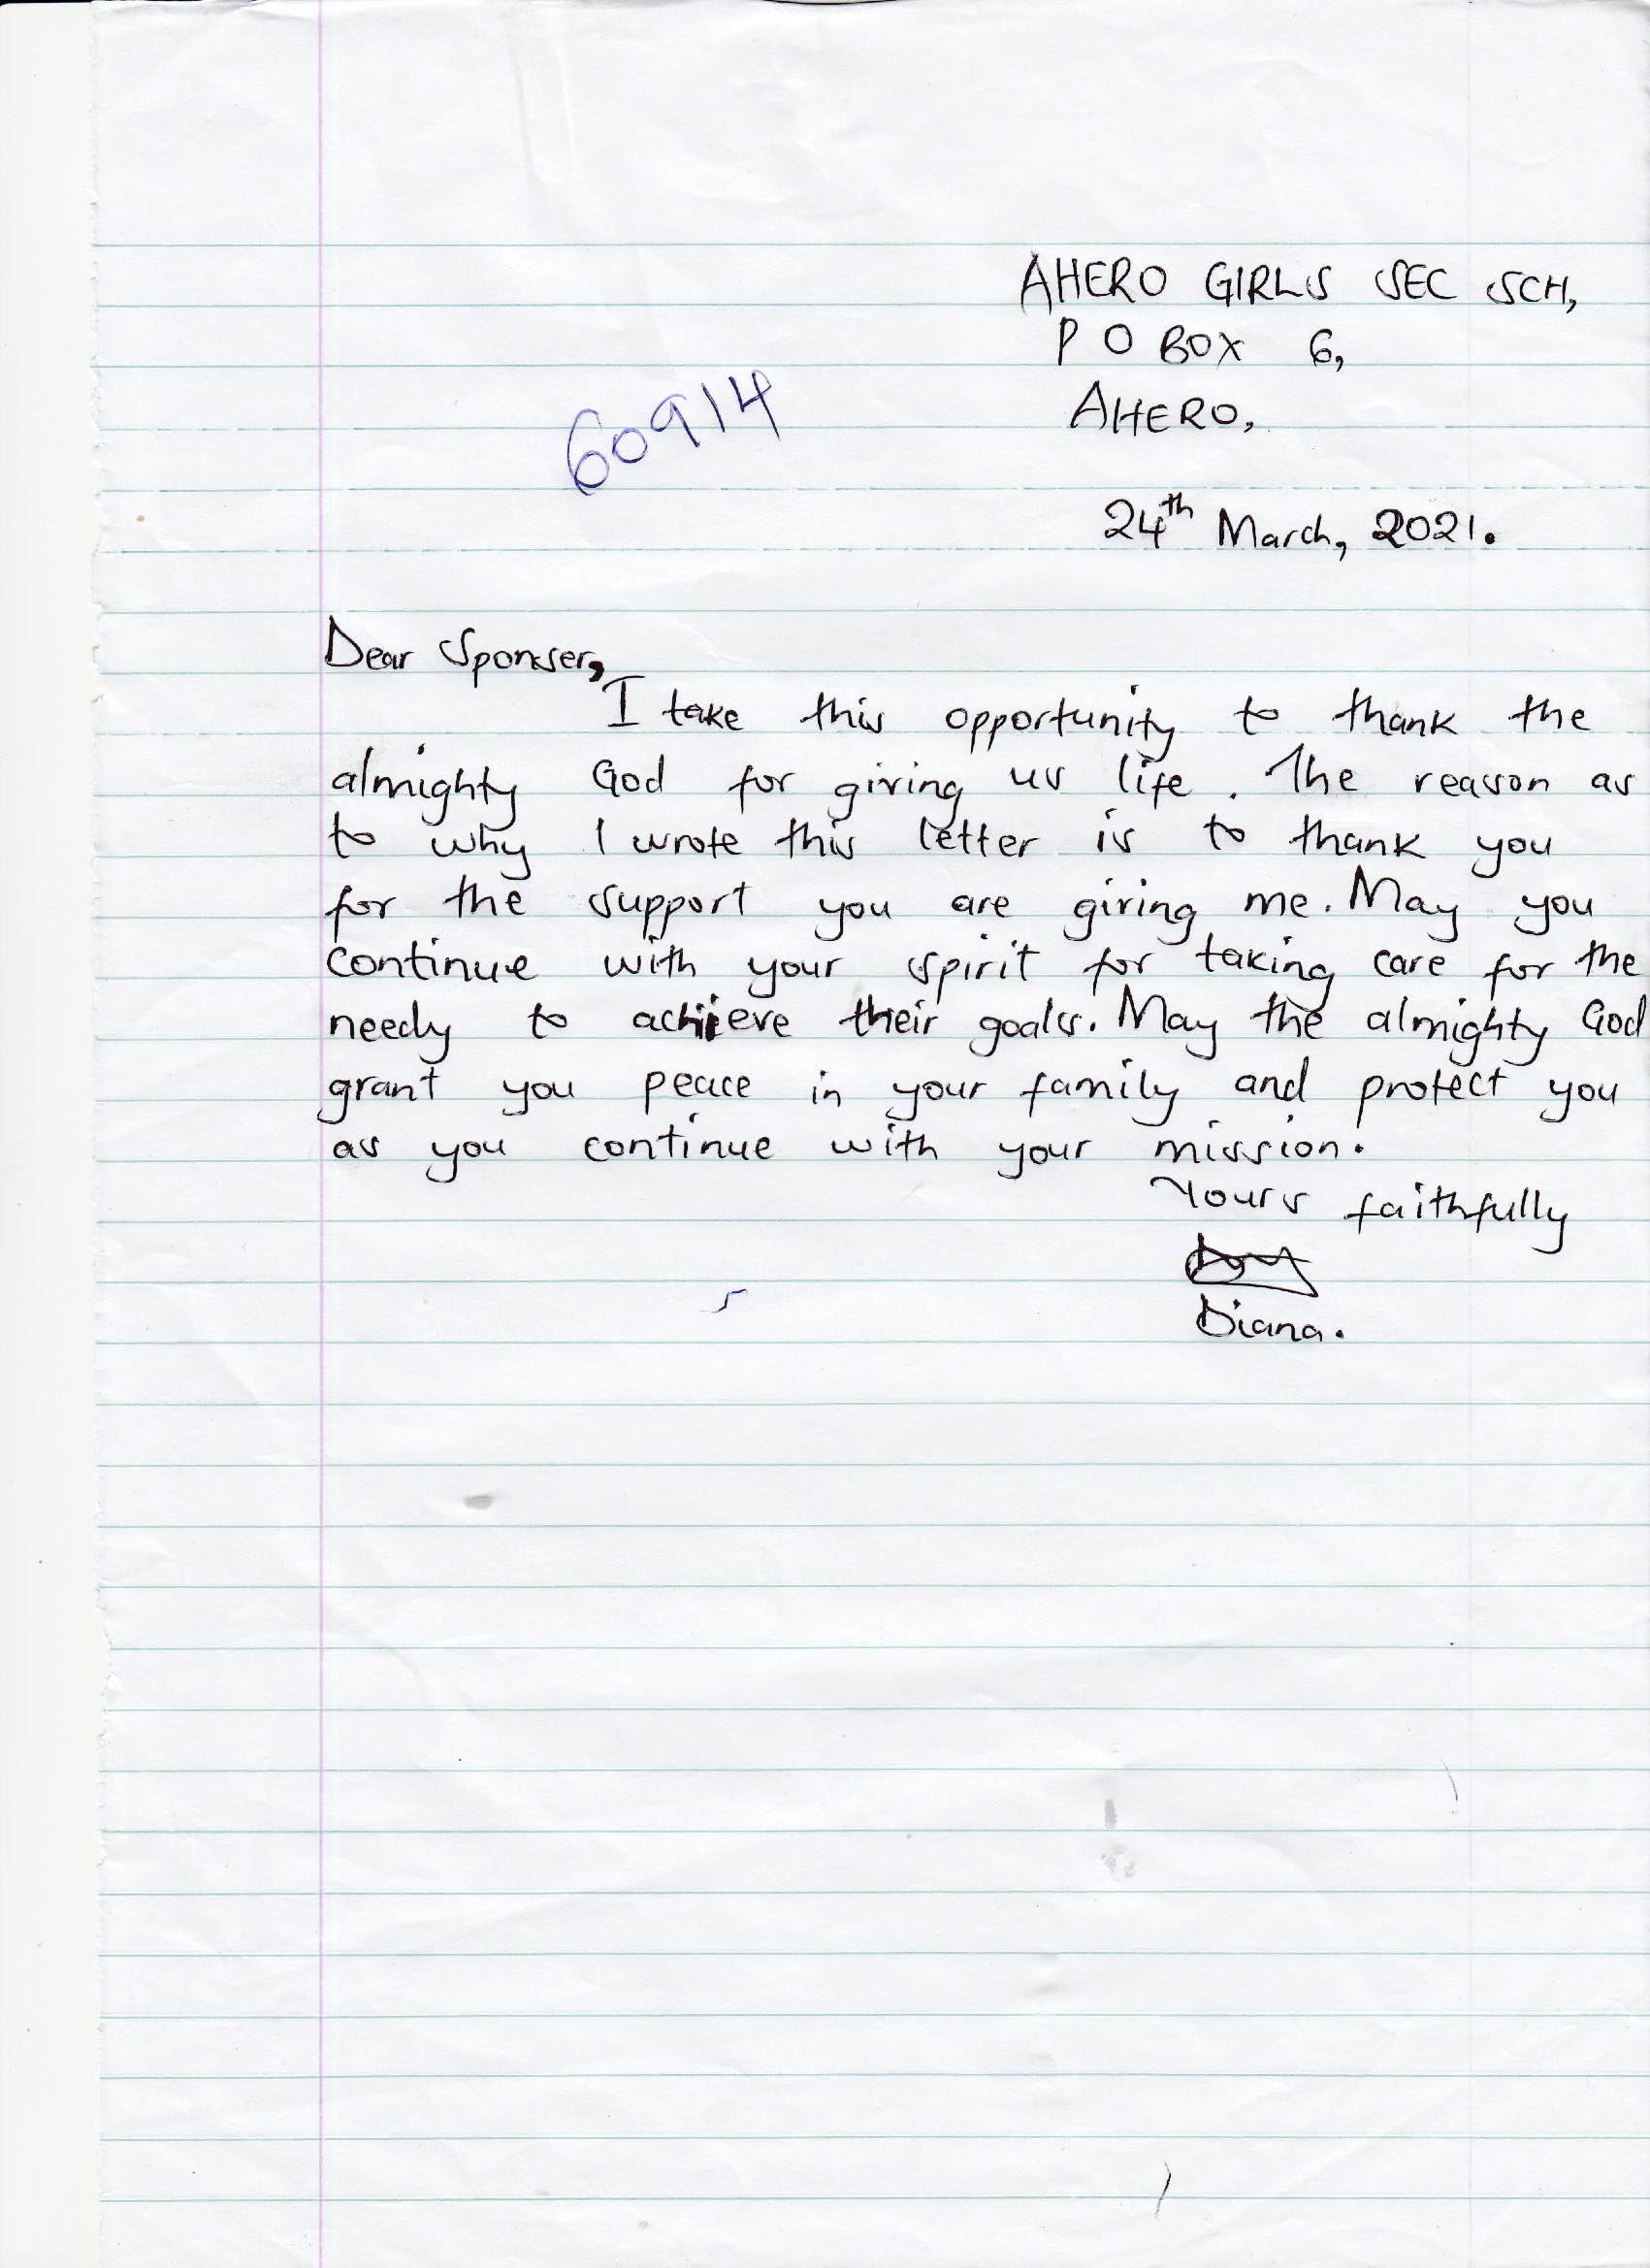 AHERO GIRLS SEC SCH,
P O BOX 6,
60914
AHERO,
24th March, 2021.
Dear Sponser,
I take this opportunity to thank the
almighty God for giving us life. The reason as
to why I wrote this letter is to thank you
for the support you are giving me. May you
continue with your spirit for taking care for the
needy to achieve their goals. May the almighty God
grant you peace in your family and protect you
as you continue with your mission.
Yours faithfully
Diana.